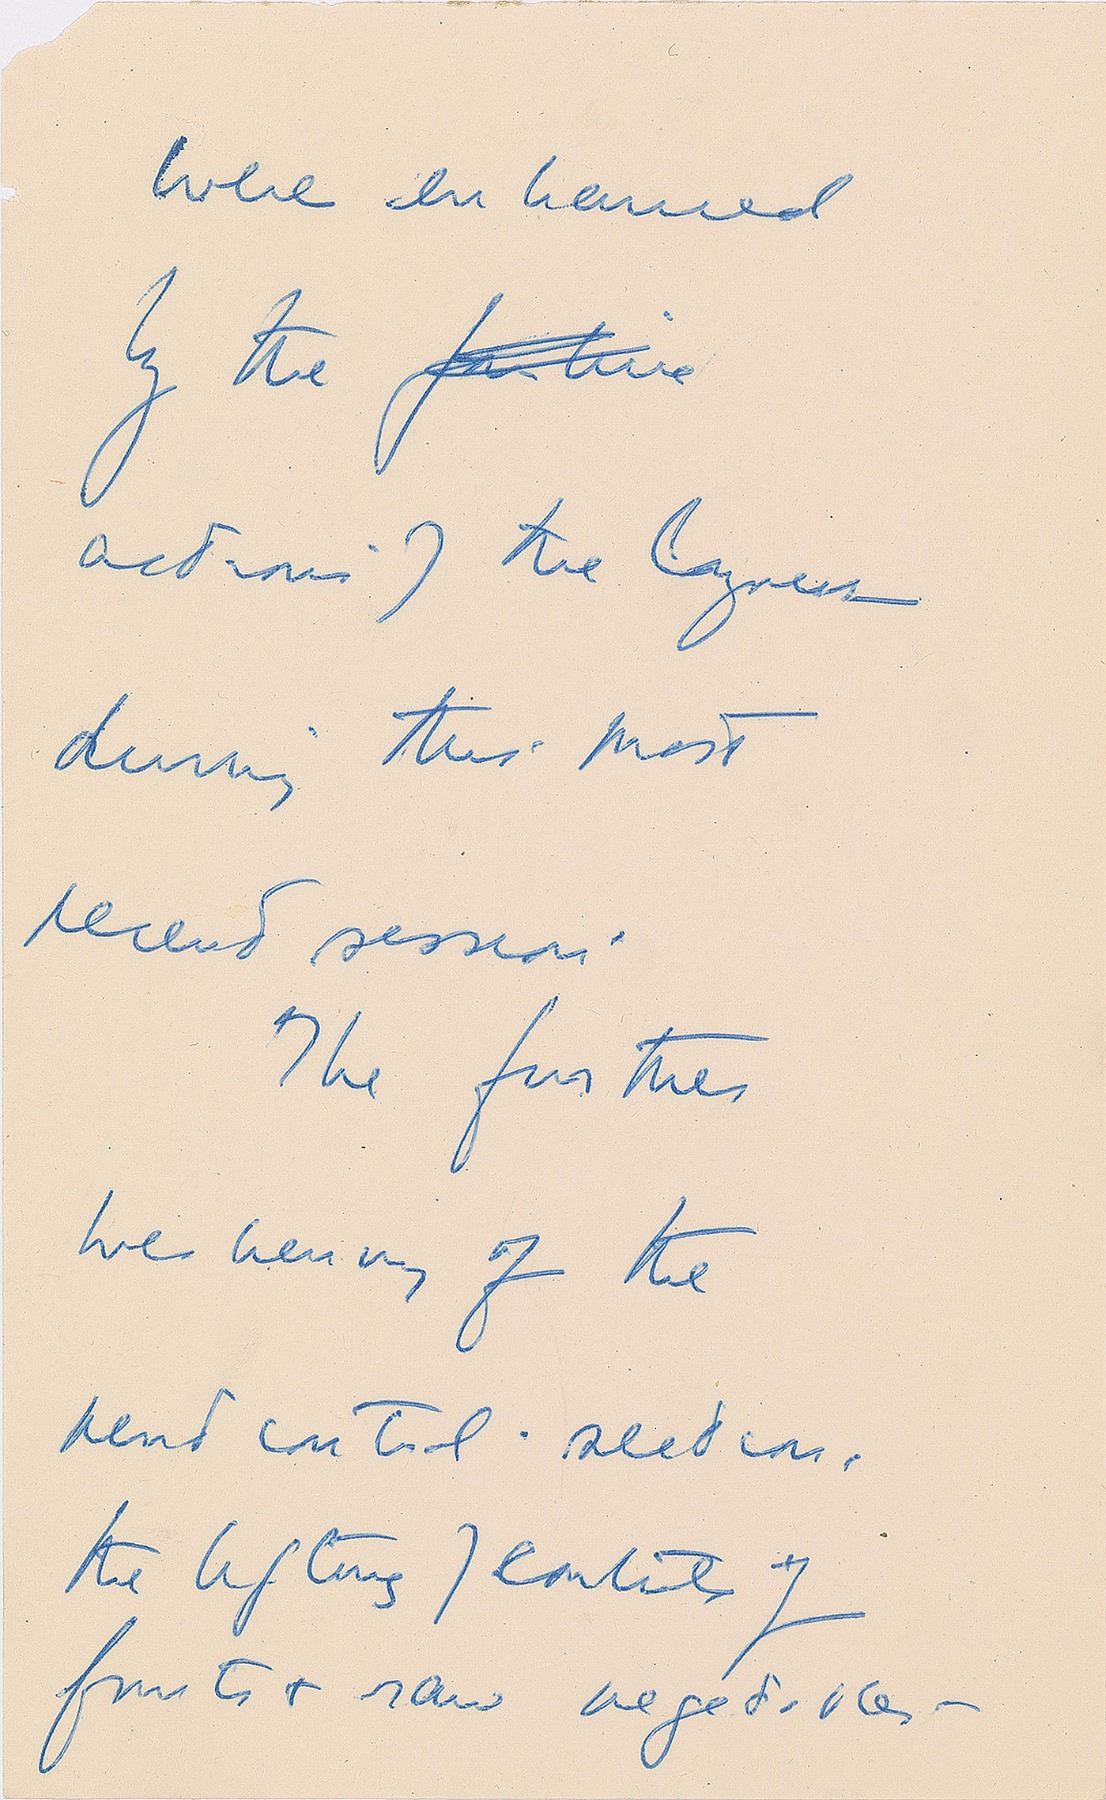 were enhanced
by the
actions of the Congress
during this most
recent session
The further
weakening of the
rent control section.
the lifting of controls of
fruits + raw vegetables -